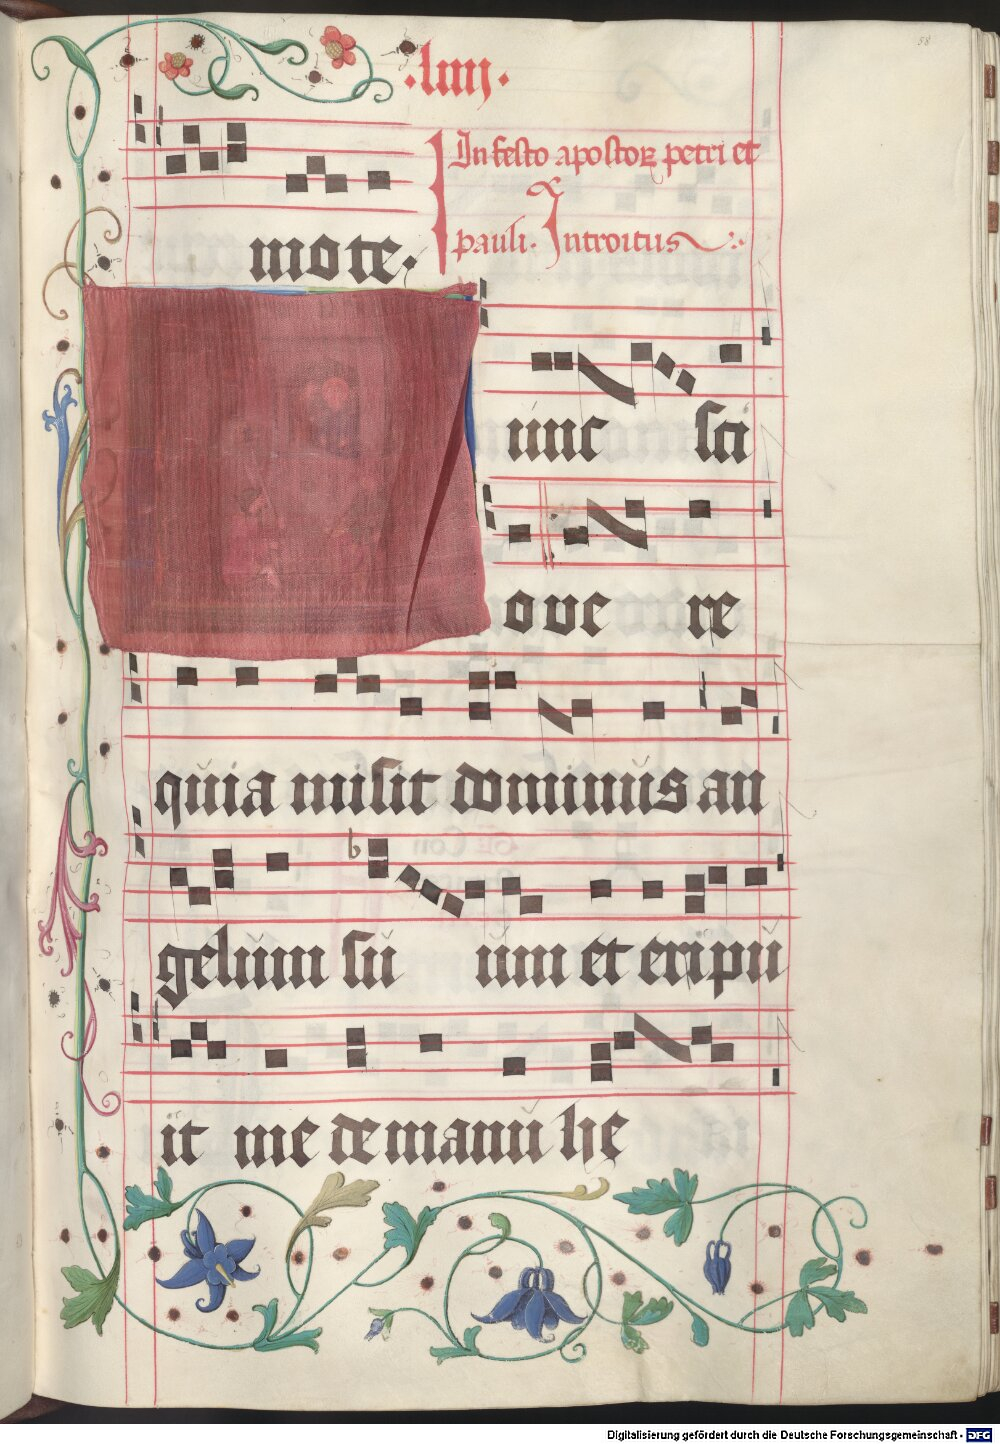 58
·lıııj·
In festo apostoꝝ petri et
pauli. Introitus
mote.
unc sci
o vere
quia misit dominus an
gelum su um et eripu
it me de manu he
Digitalisierung gefördert durch die Deutsche Forschungsgemeinschaft - DFG